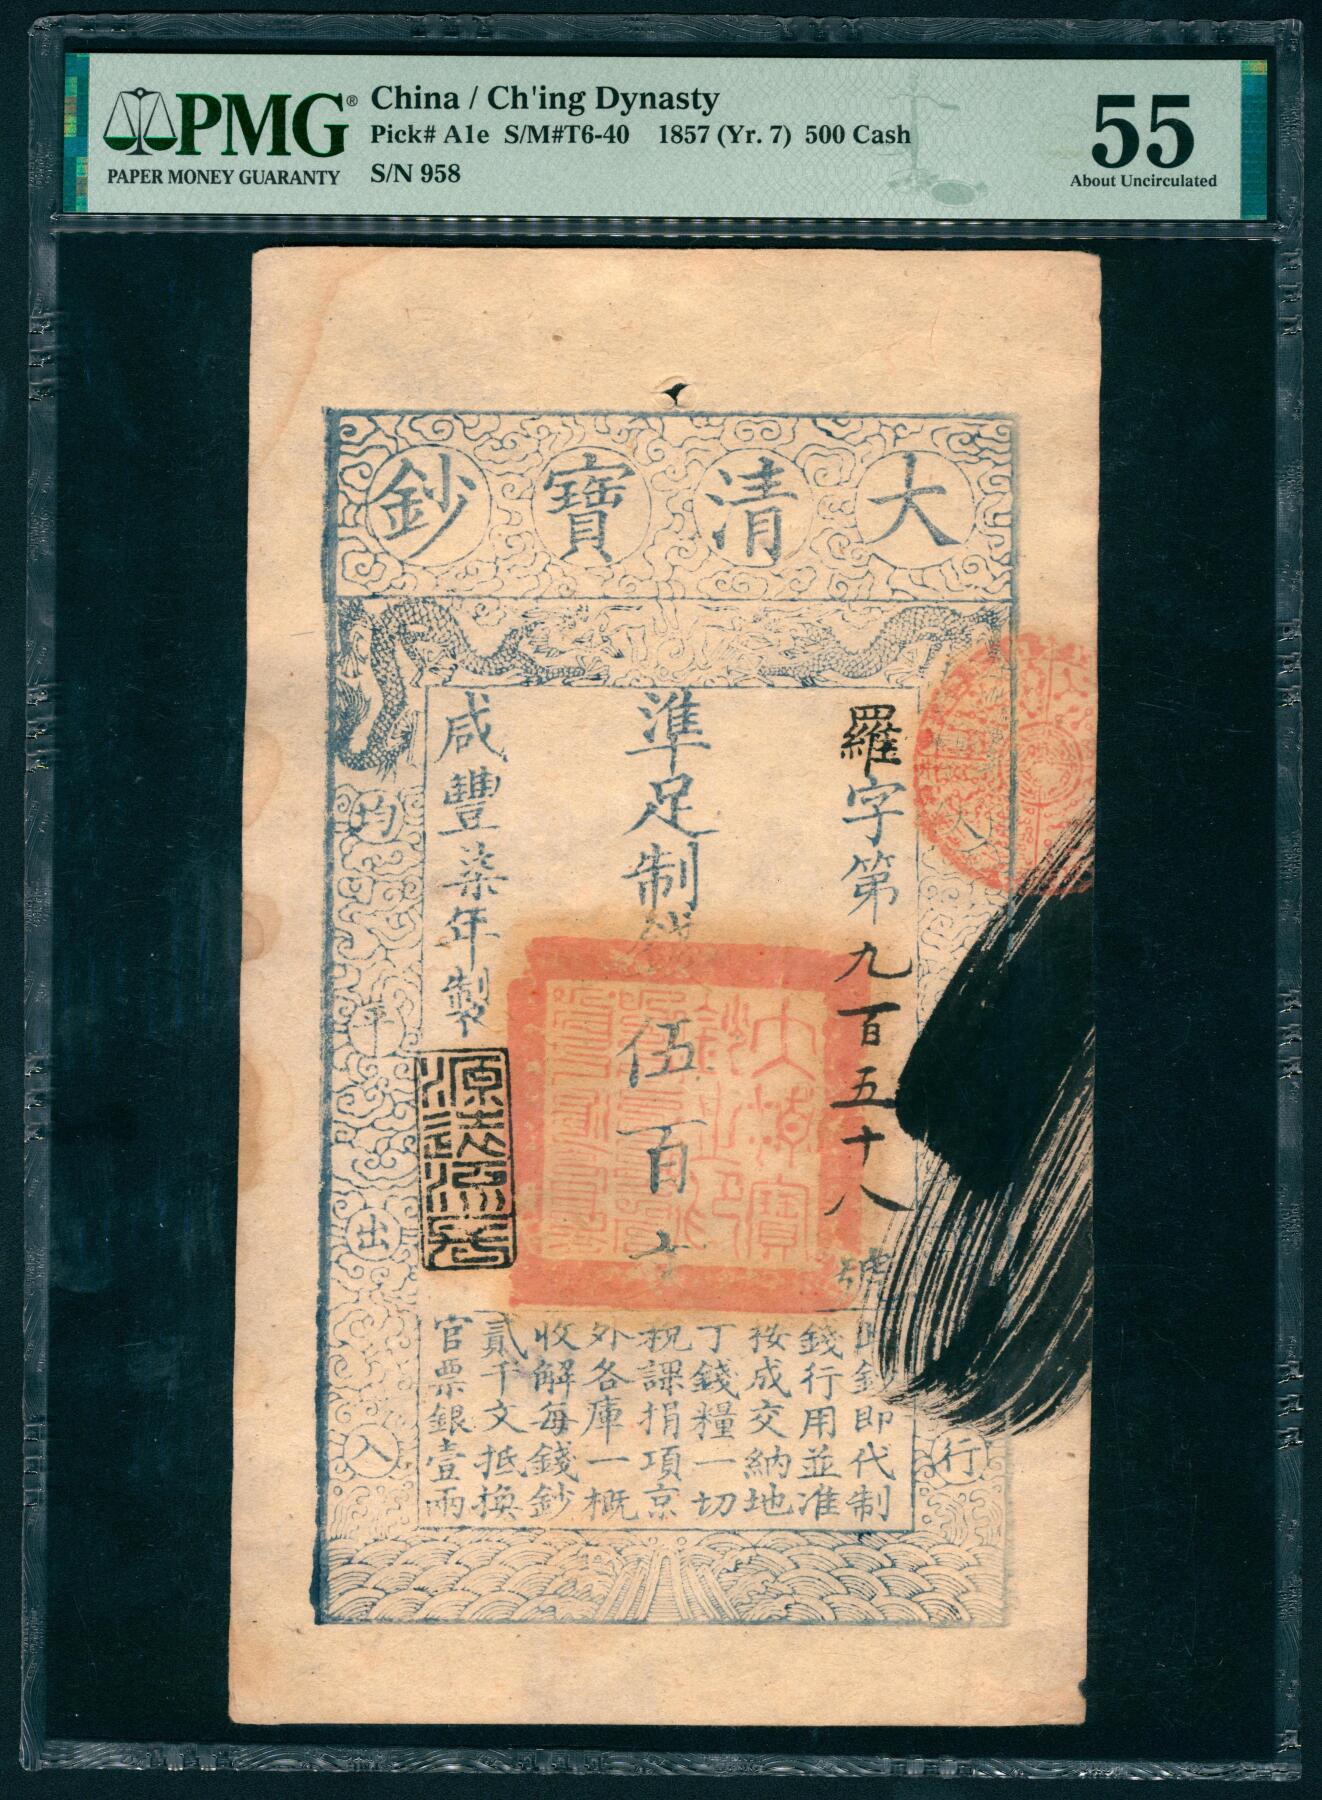 PMG®
PAPER MONEY GUARANTY
China / Ch'ing Dynasty
Pick# A1e S/M#T6-40 1857 (Yr. 7) 500 Cash
S/N 958
55
About Uncirculated
大清寶鈔
羅字第九百五十八號
準足制錢伍百文
咸豐柒年製
源遠流長
大清寶鈔之印
天
行
均平出入
此鈔即代制
錢行用並准
按成交納地
丁錢糧一切
稅課捐項京
外各庫一概
收解每錢鈔
貳千文抵換
官票銀壹兩